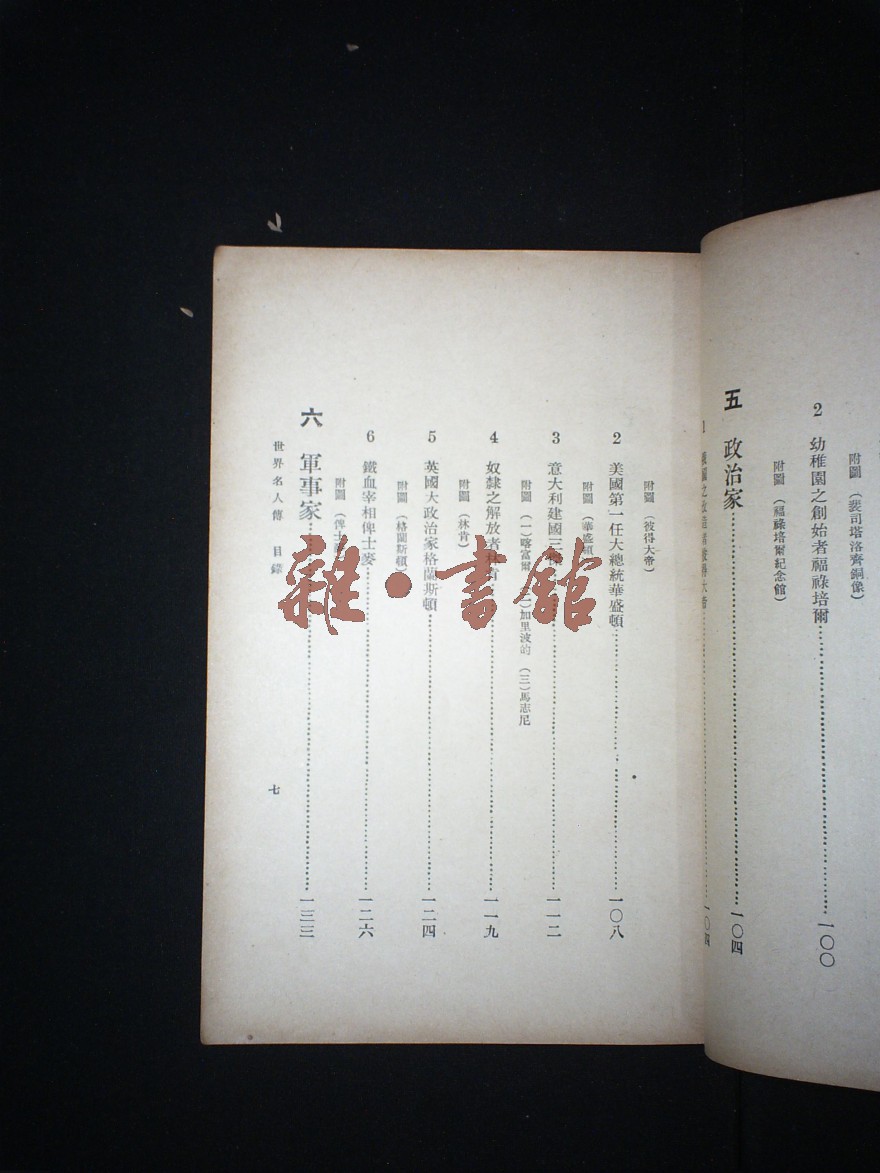 附圖 (裴司塔洛齊銅像)
2 幼稚園之創始者福祿培爾……一〇〇
附圖 (福祿培爾紀念館)
五 政治家……一〇四
1 俄國之改造者彼得大帝……一〇四
附圖 (彼得大帝)
2 美國第一任大總統華盛頓……一〇八
附圖 (華盛頓)
3 意大利建國三傑……一一二
附圖 (一)喀富爾 (二)加里波的 (三)馬志尼
4 奴隸之解放者林肯……一一九
附圖 (林肯)
5 英國大政治家格蘭斯頓……一二四
附圖 (格蘭斯頓)
6 鐵血宰相俾士麥……一二六
附圖 (俾士麥)
六 軍事家……一三三
世界名人傳 目錄
七
雜·書館